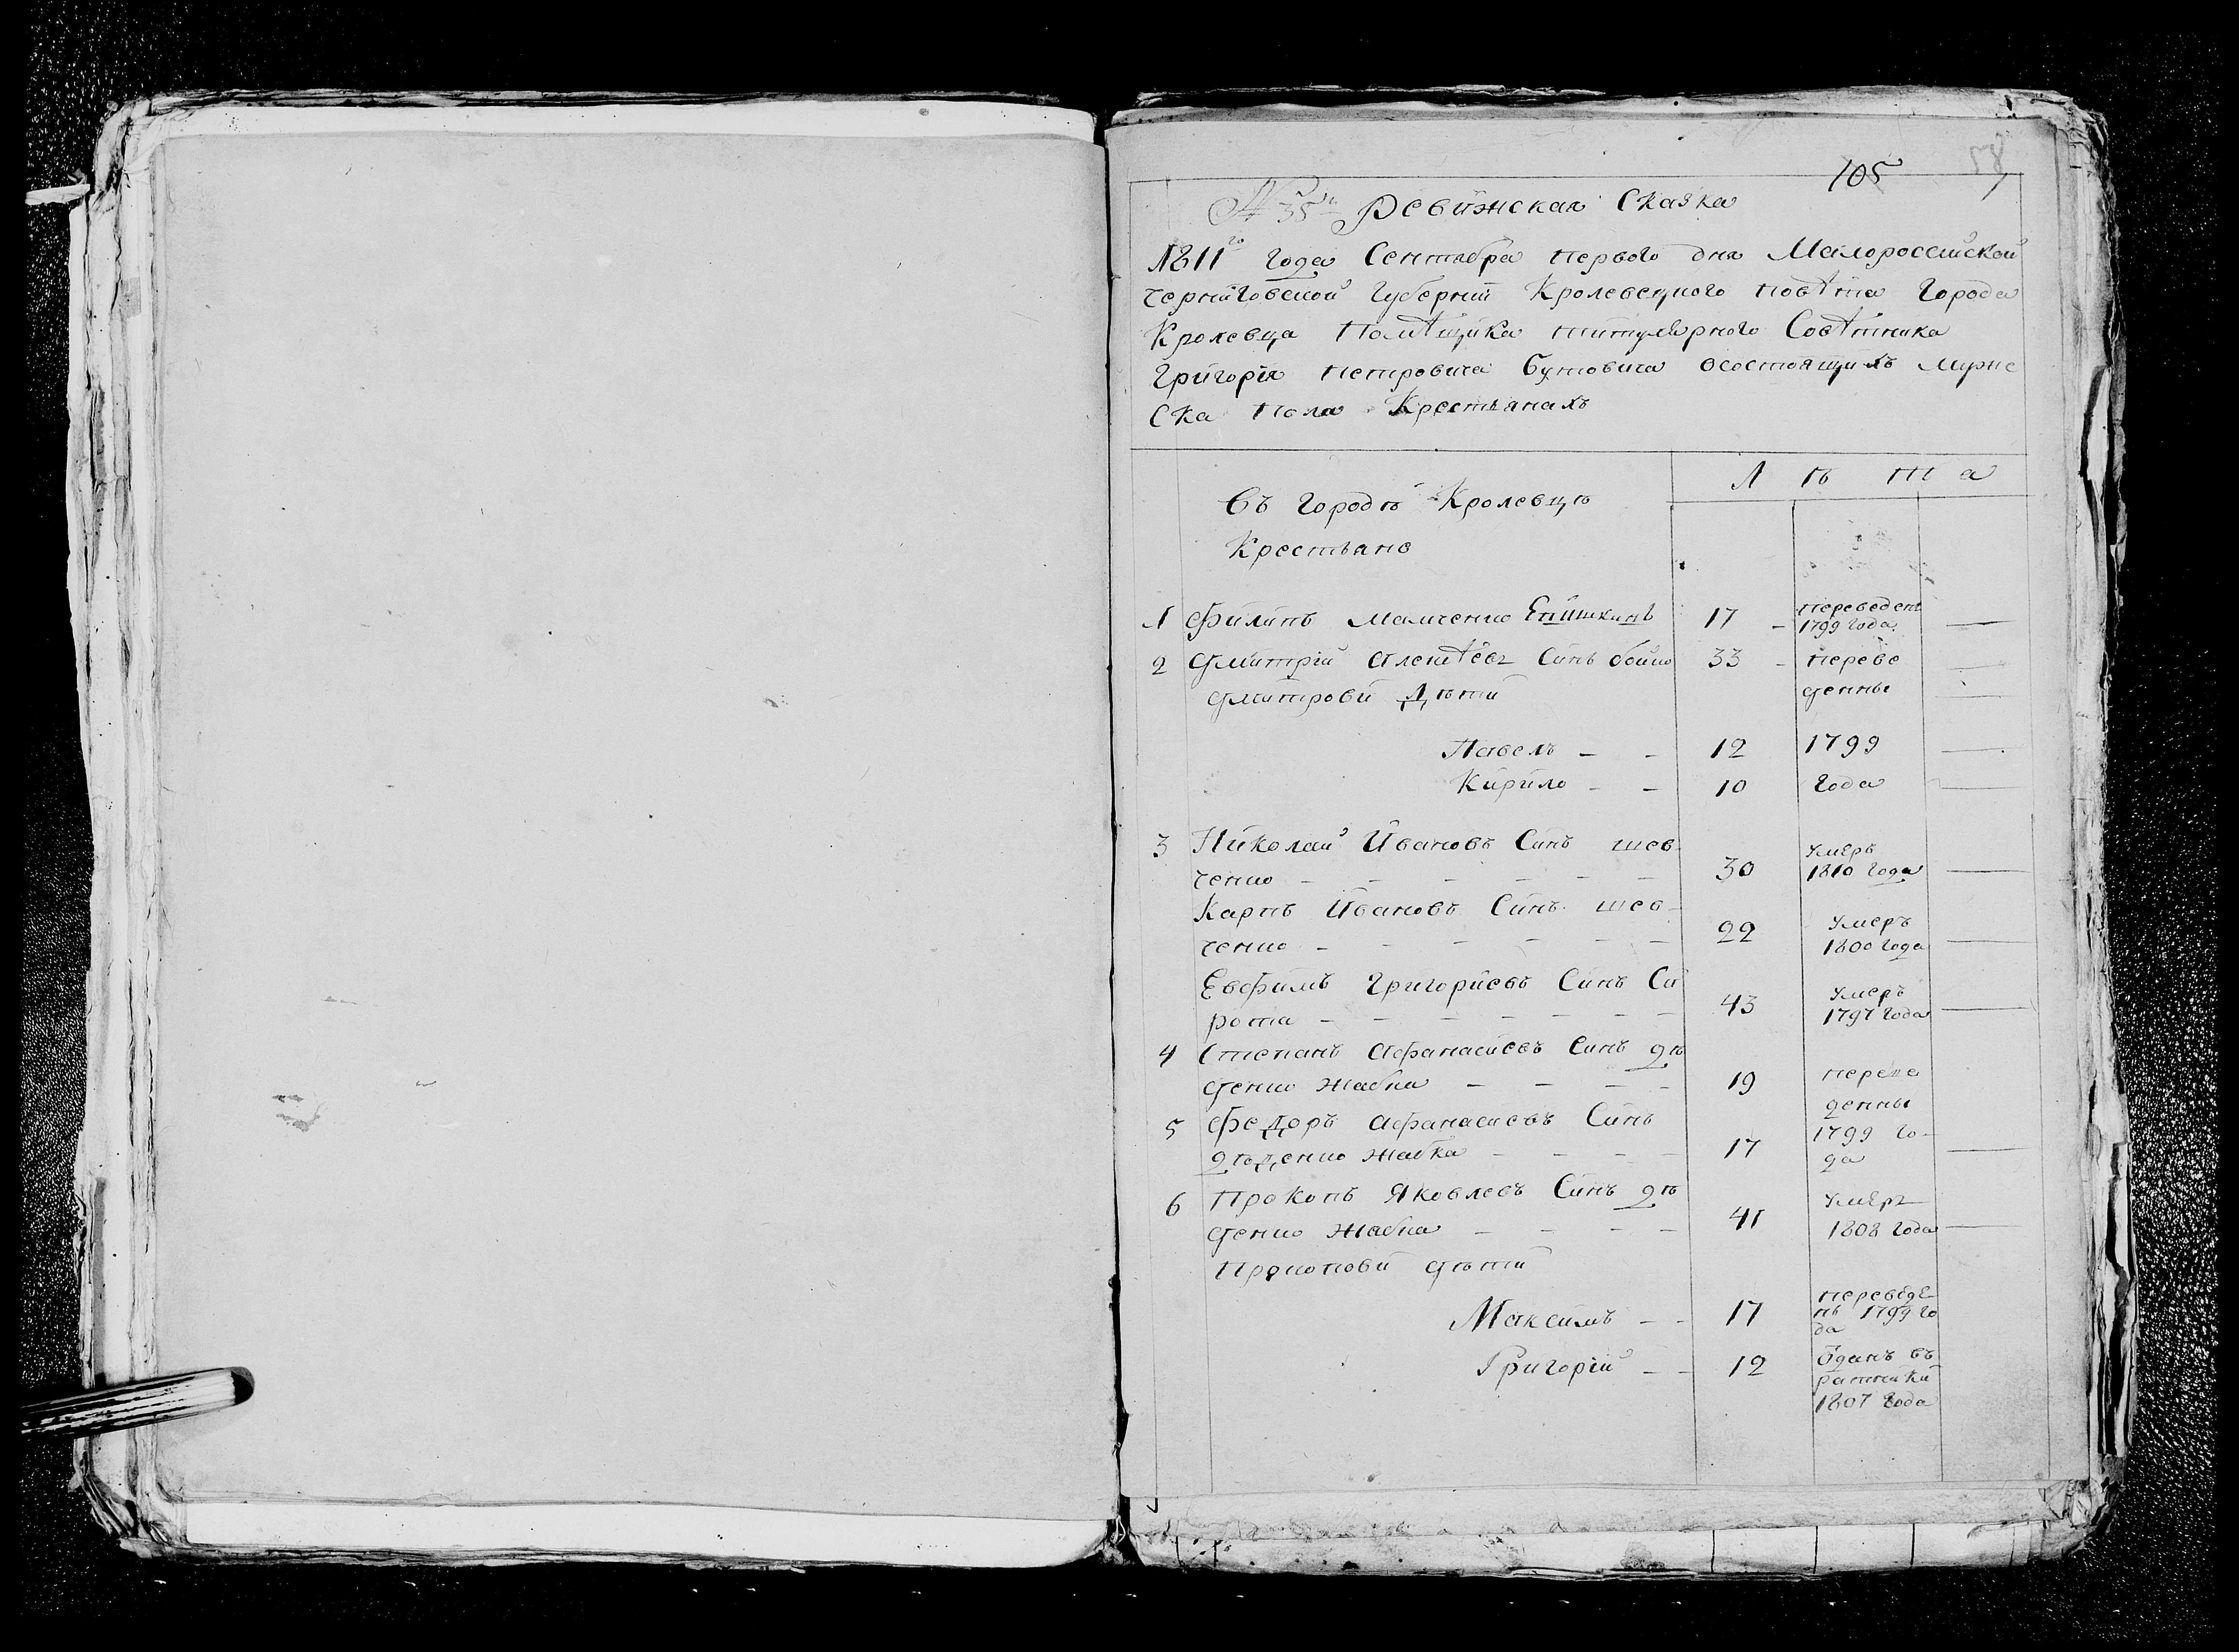 105
58
№ 35й Ревизская Сказка
1811го года Сентабра первого дня Малороссійской
черниговской губерніи Кролевецкого повѣта города
Кролевца Помѣщика титулярного Совѣтника
Григорія петровича Бутовича осостоящихъ мужес
ска пола Крестьянахъ
Л ѣ т а
Въ городѣ Кролевцѣ
Крестьяне
1 Филипъ 17 - переведенъ
1799 года
2 Дмитрій Алексѣевъ Синъ бойко 33 - переве
Дмитрови Дѣти денны
Павелъ - - 12 1799
Кирило - - 10 года
3 Николай Ивановъ Синъ шев-
ченко - - - - - - 30 умеръ
1810 года
Карпъ Ивановъ Синъ шев-
ченко - - - - - - 22 умеръ
1800 года
Евфимъ Григориевъ Синъ Си
рота - - - - - - 43 умеръ
1797 года
4 Степанъ Афанасиевъ Синъ дѣ
денко жабка - - - - 19 переве
денны
5 Федоръ Афанасиевъ Синъ
дѣденко жабка - - - - 17 1799 го-
да
6 Прокопъ Яковлевъ Синъ дѣ
денко жабка - - - - 41 умеръ
1808 года
Прокопови дѣти
Максимъ - - 17 переведе
нъ 1799 го
да
Григорій - - 12 Оданъ въ
ратники
1807 года